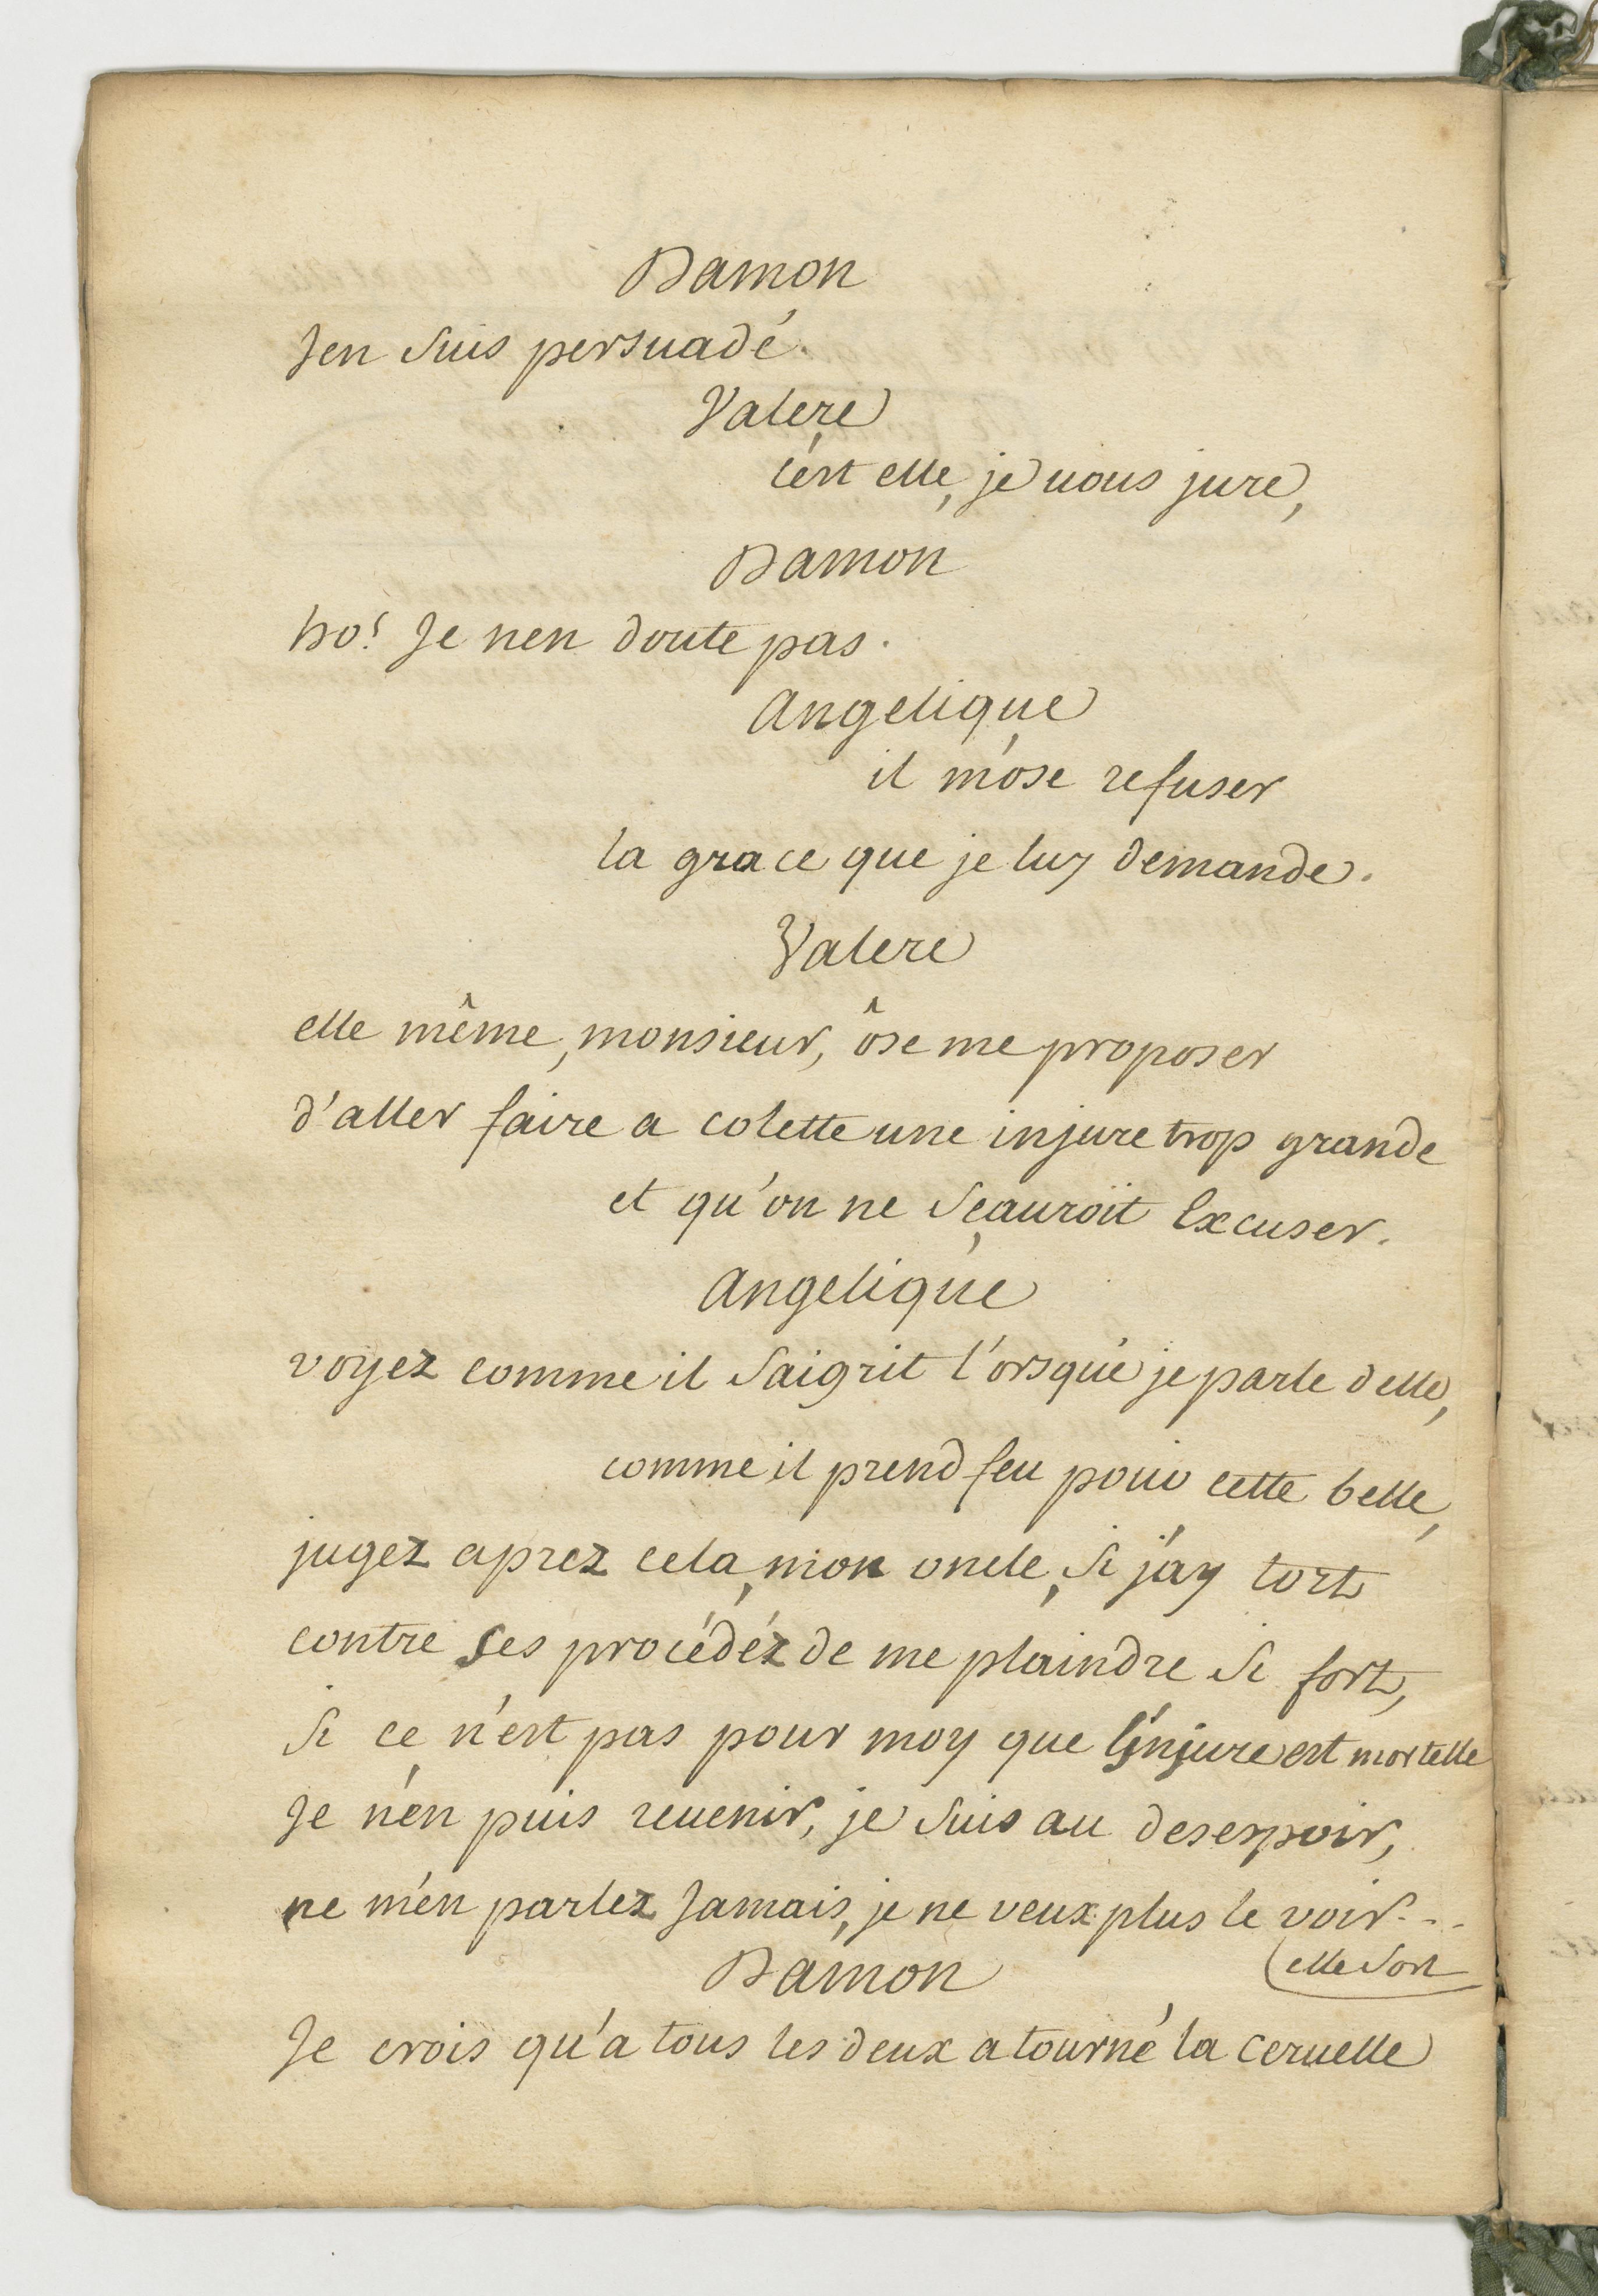 Damon
Jen suis persuadé.
Valere
c'est elle, je uous jure,
Damon
ho! Je nen doute pas.
Angelique
il m'ose refuser
la grace que je luy demande.
Valere
elle même, monsieur, ôse me proposer
d'aller faire a colette une injure trop grande
et qu'on ne sçauroit Excuser.
Angelique
voyez comme il saigrit l'orsque je parle delle,
comme il prend feu pour cette belle,
jugez aprez cela, mon oncle, si j'ay tort
contre ses procédéz de me plaindre si fort,
si ce n'est pas pour moy que l'injure est mortelle
Je n'en puis reuenir, je suis au desespoir,
ne m'en parlez Jamais, je ne veux plus le voir...
(elle sort
Damon
Je crois qu'a tous les deux a tourné la ceruelle